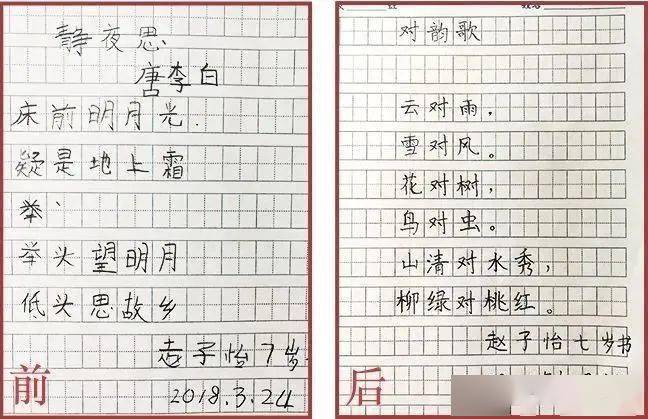 静夜思
唐李白
床前明月光.
疑是地上霜
举、
举头望明月
低头思故乡
赵子怡7岁
2018.3.24
前
对韵歌
云对雨，
雪对风。
花对树，
鸟对虫。
山清对水秀，
柳绿对桃红。
赵子怡七岁书
后